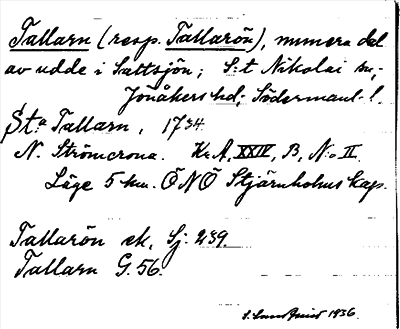 Tallarn (resp. Tallarön), numera del
av udde i Saltsjön; S:t Nikolai sn,
Jönåkers hd; Södermanl. l.
St:a Tallarn, 1734.
N. Strömcrona. Kr. A, XXIV, B, No II.
Läge 5 km. ÖNÖ Stjärnholms kap.
Tallarön ek. Sj. 239.
Tallarn G. 56.
S. Lundquist 1936.